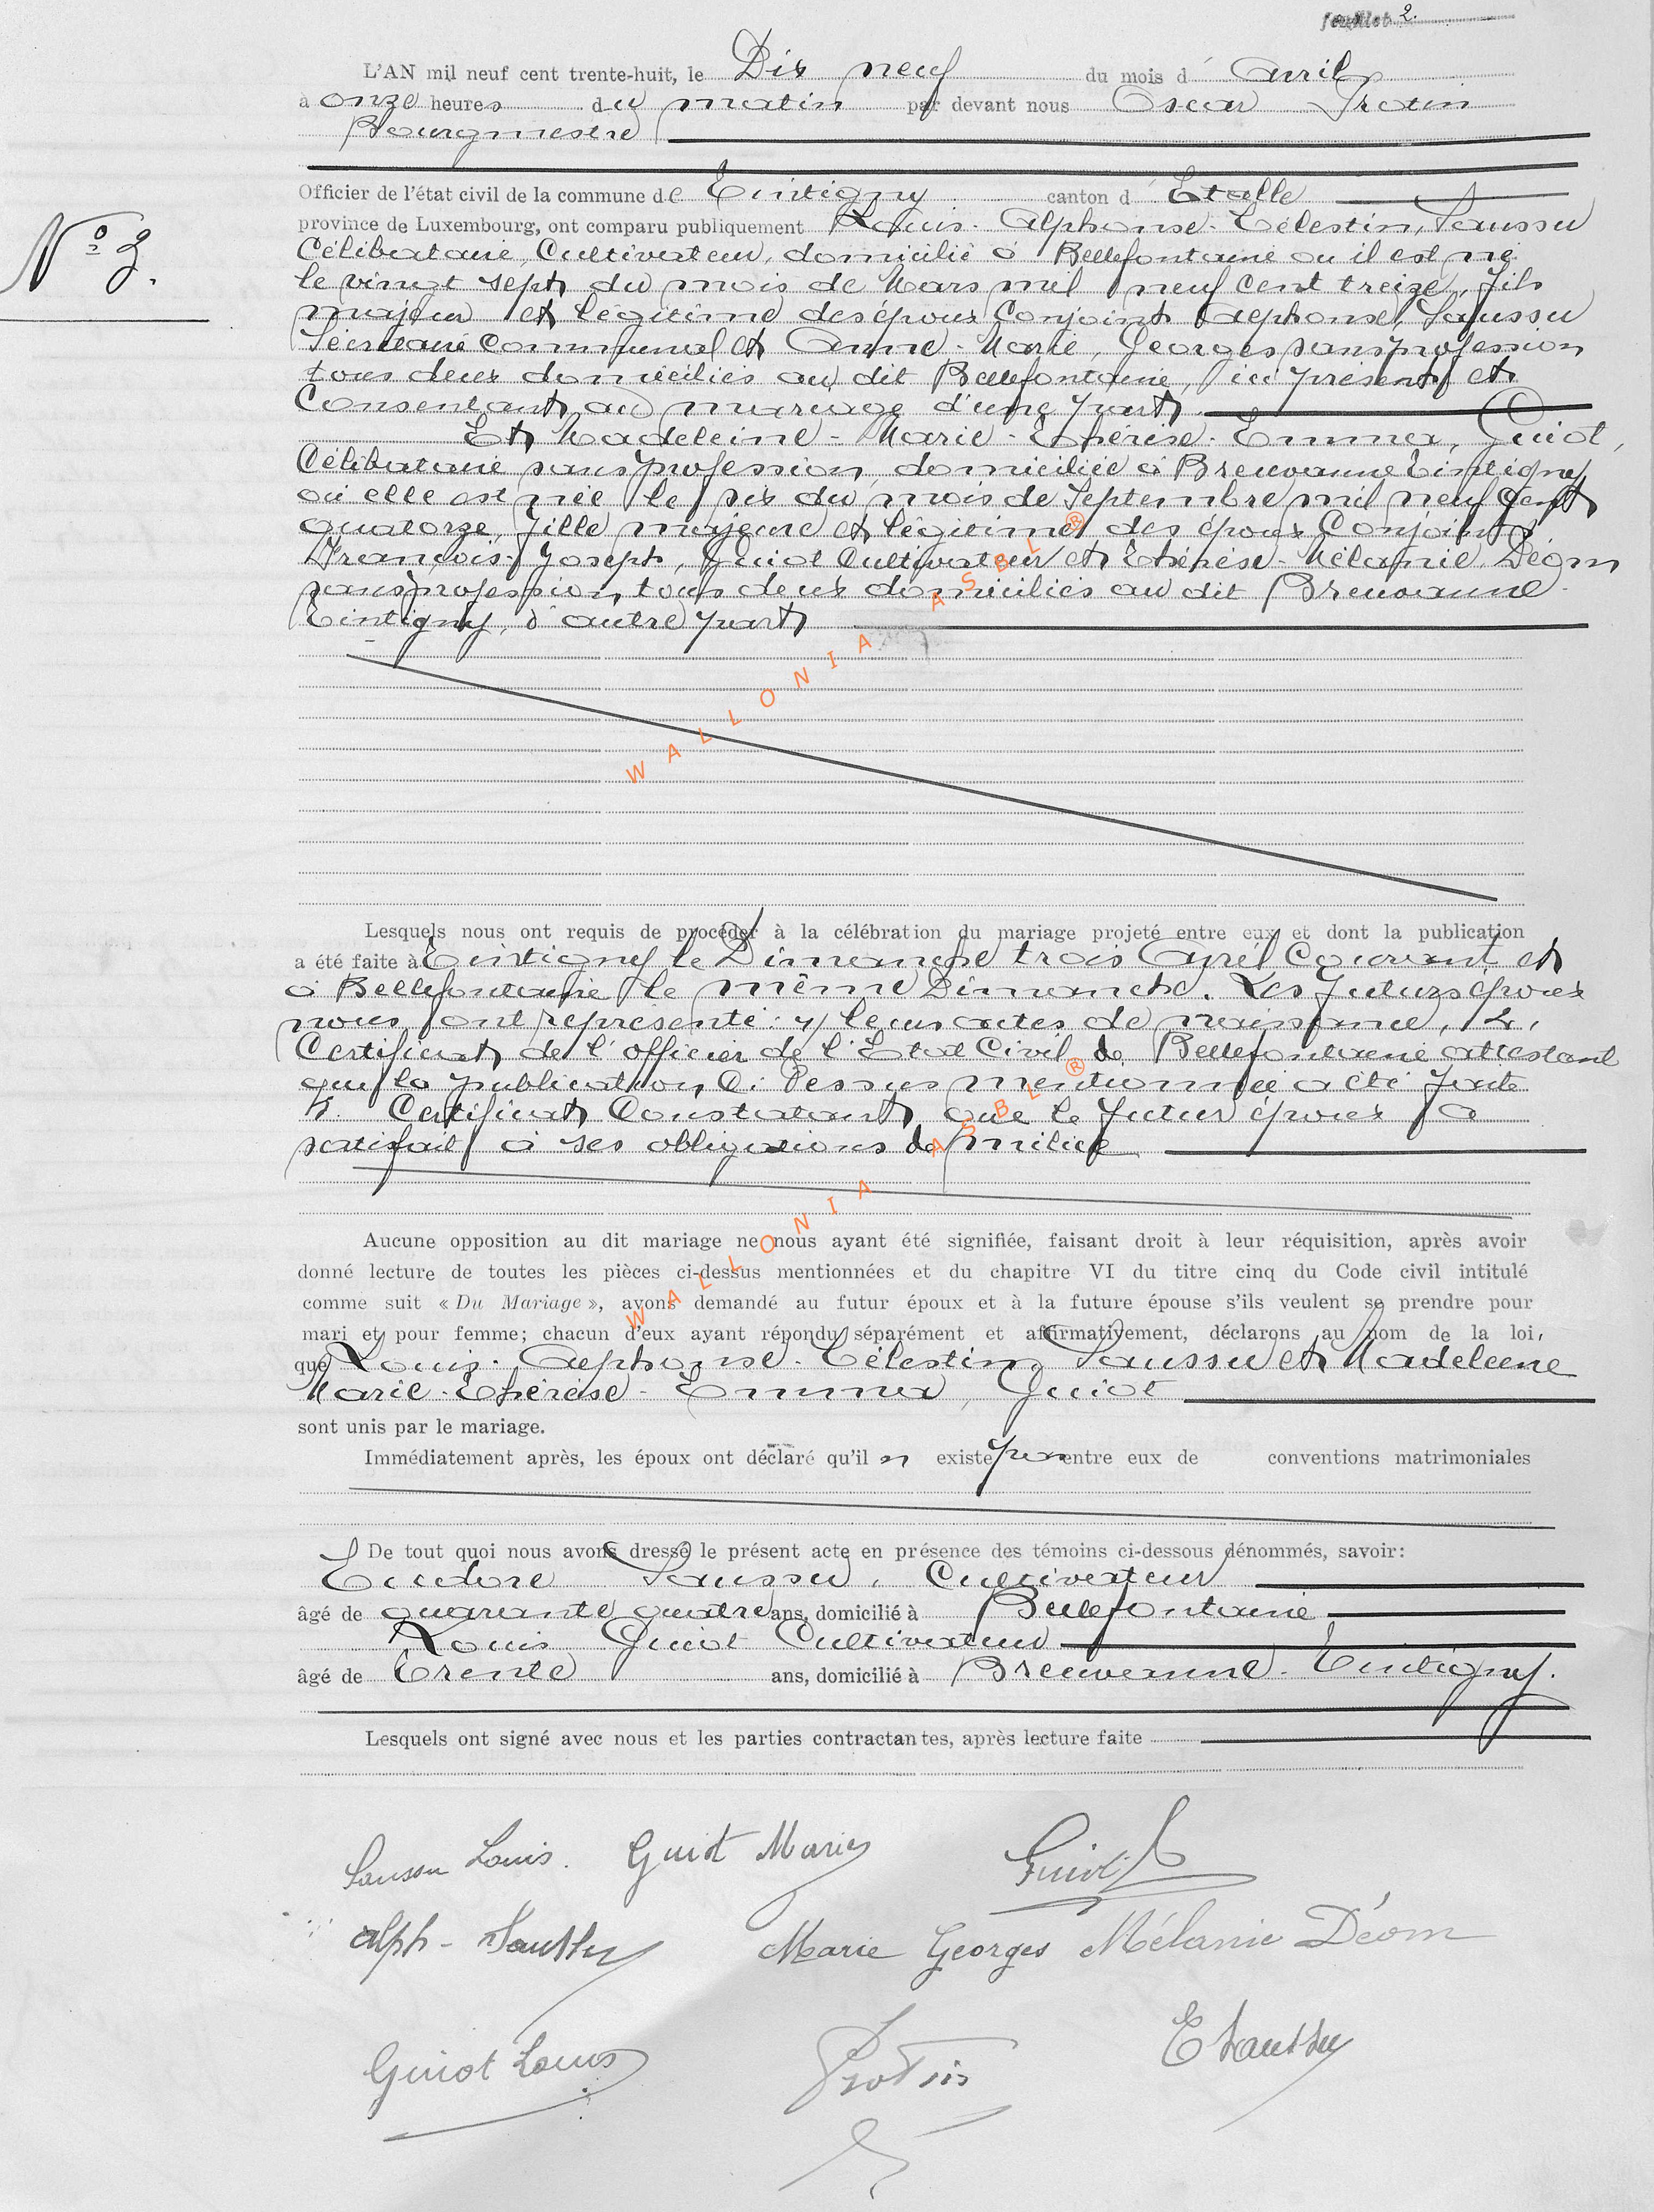 feuillet 2.
L'AN mil neuf cent trente-huit, le Dix neuf du mois d' Avril
à onze heures du matin par devant nous Oscar Protin
Bourgmestre
Officier de l'état civil de la commune de Tintigny canton d' Etalle
province de Luxembourg, ont comparu publiquement Louis-Alphonse-Célestin, Saussu
N° 3.
Célibataire, Cultivateur, domicilié à Bellefontaine ou il est né
le vingt sept du mois de Mars mil neuf cent treize, fils
majeur et légitime des époux Conjoints Alphonse, Saussu
Secrétaire Communal et Anne-Marie, Georges sans profession
tous deux domiciliés au dit Bellefontaine, ici présents et
Consentant au mariage d'une part
Et Madeleine-Marie-Thérèse-Emma, Guiot,
Célibataire sans profession, domiciliée à Breuvanne Tintigny
où elle est née le six du mois de Septembre mil neuf cent
quatorze, fille majeure et légitime des époux Conjoints
François-Joseph, Guiot Cultivateur et Thérèse-Mélanie, Déom
sans profession, tous deux domiciliés au dit Breuvanne-
Tintigny, d'autre part
WALLONIA ASBL ®
Lesquels nous ont requis de procéder à la célébration du mariage projeté entre eux et dont la publication
a été faite à Tintigny le Dimanche trois Avril Courant et
à Bellefontaine le même Dimanche. Les futurs époux
nous ont représenté: 1/ leurs actes de naissance, 2,
Certificat de l'officier de l'Etat Civil de Bellefontaine attestant
que la publication Ci Dessus mentionnée a été faite
Certificat Constatant que le futur époux a
satisfait à ses obligations de milice
WALLONIA ASBL ®
Aucune opposition au dit mariage ne nous ayant été signifiée, faisant droit à leur réquisition, après avoir
donné lecture de toutes les pièces ci-dessus mentionnées et du chapitre VI du titre cinq du Code civil intitulé
comme suit « Du Mariage », avons demandé au futur époux et à la future épouse s'ils veulent se prendre pour
mari et pour femme; chacun d'eux ayant répondu séparément et affirmativement, déclarons au nom de la loi,
que Louis-Alphonse-Célestin, Saussu et Madeleine
Marie-Thérèse-Emma, Guiot
sont unis par le mariage.
Immédiatement après, les époux ont déclaré qu'il n existe pas entre eux de conventions matrimoniales
De tout quoi nous avons dressé le présent acte en présence des témoins ci-dessous dénommés, savoir:
Eudore Saussu, Cultivateur
âgé de quarante quatre ans, domicilié à Bellefontaine
Louis Guiot Cultivateur
âgé de Trente ans, domicilié à Breuvanne-Tintigny.
Lesquels ont signé avec nous et les parties contractantes, après lecture faite
Saussu Louis. Guiot Marie Guiot
Alph-Saussu Marie Georges Mélanie Déom
Guiot Louis Protin E Saussu